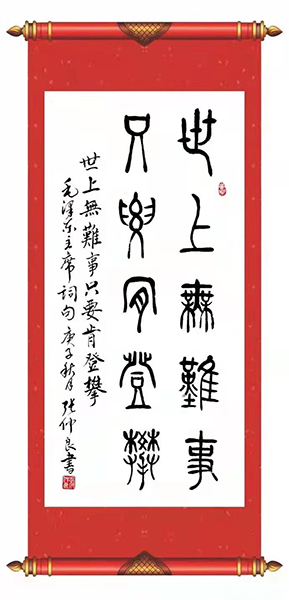 世上無難事
只要肯登攀
世上無難事只要肯登攀
毛澤东主席詞句庚子秋月張仲良書